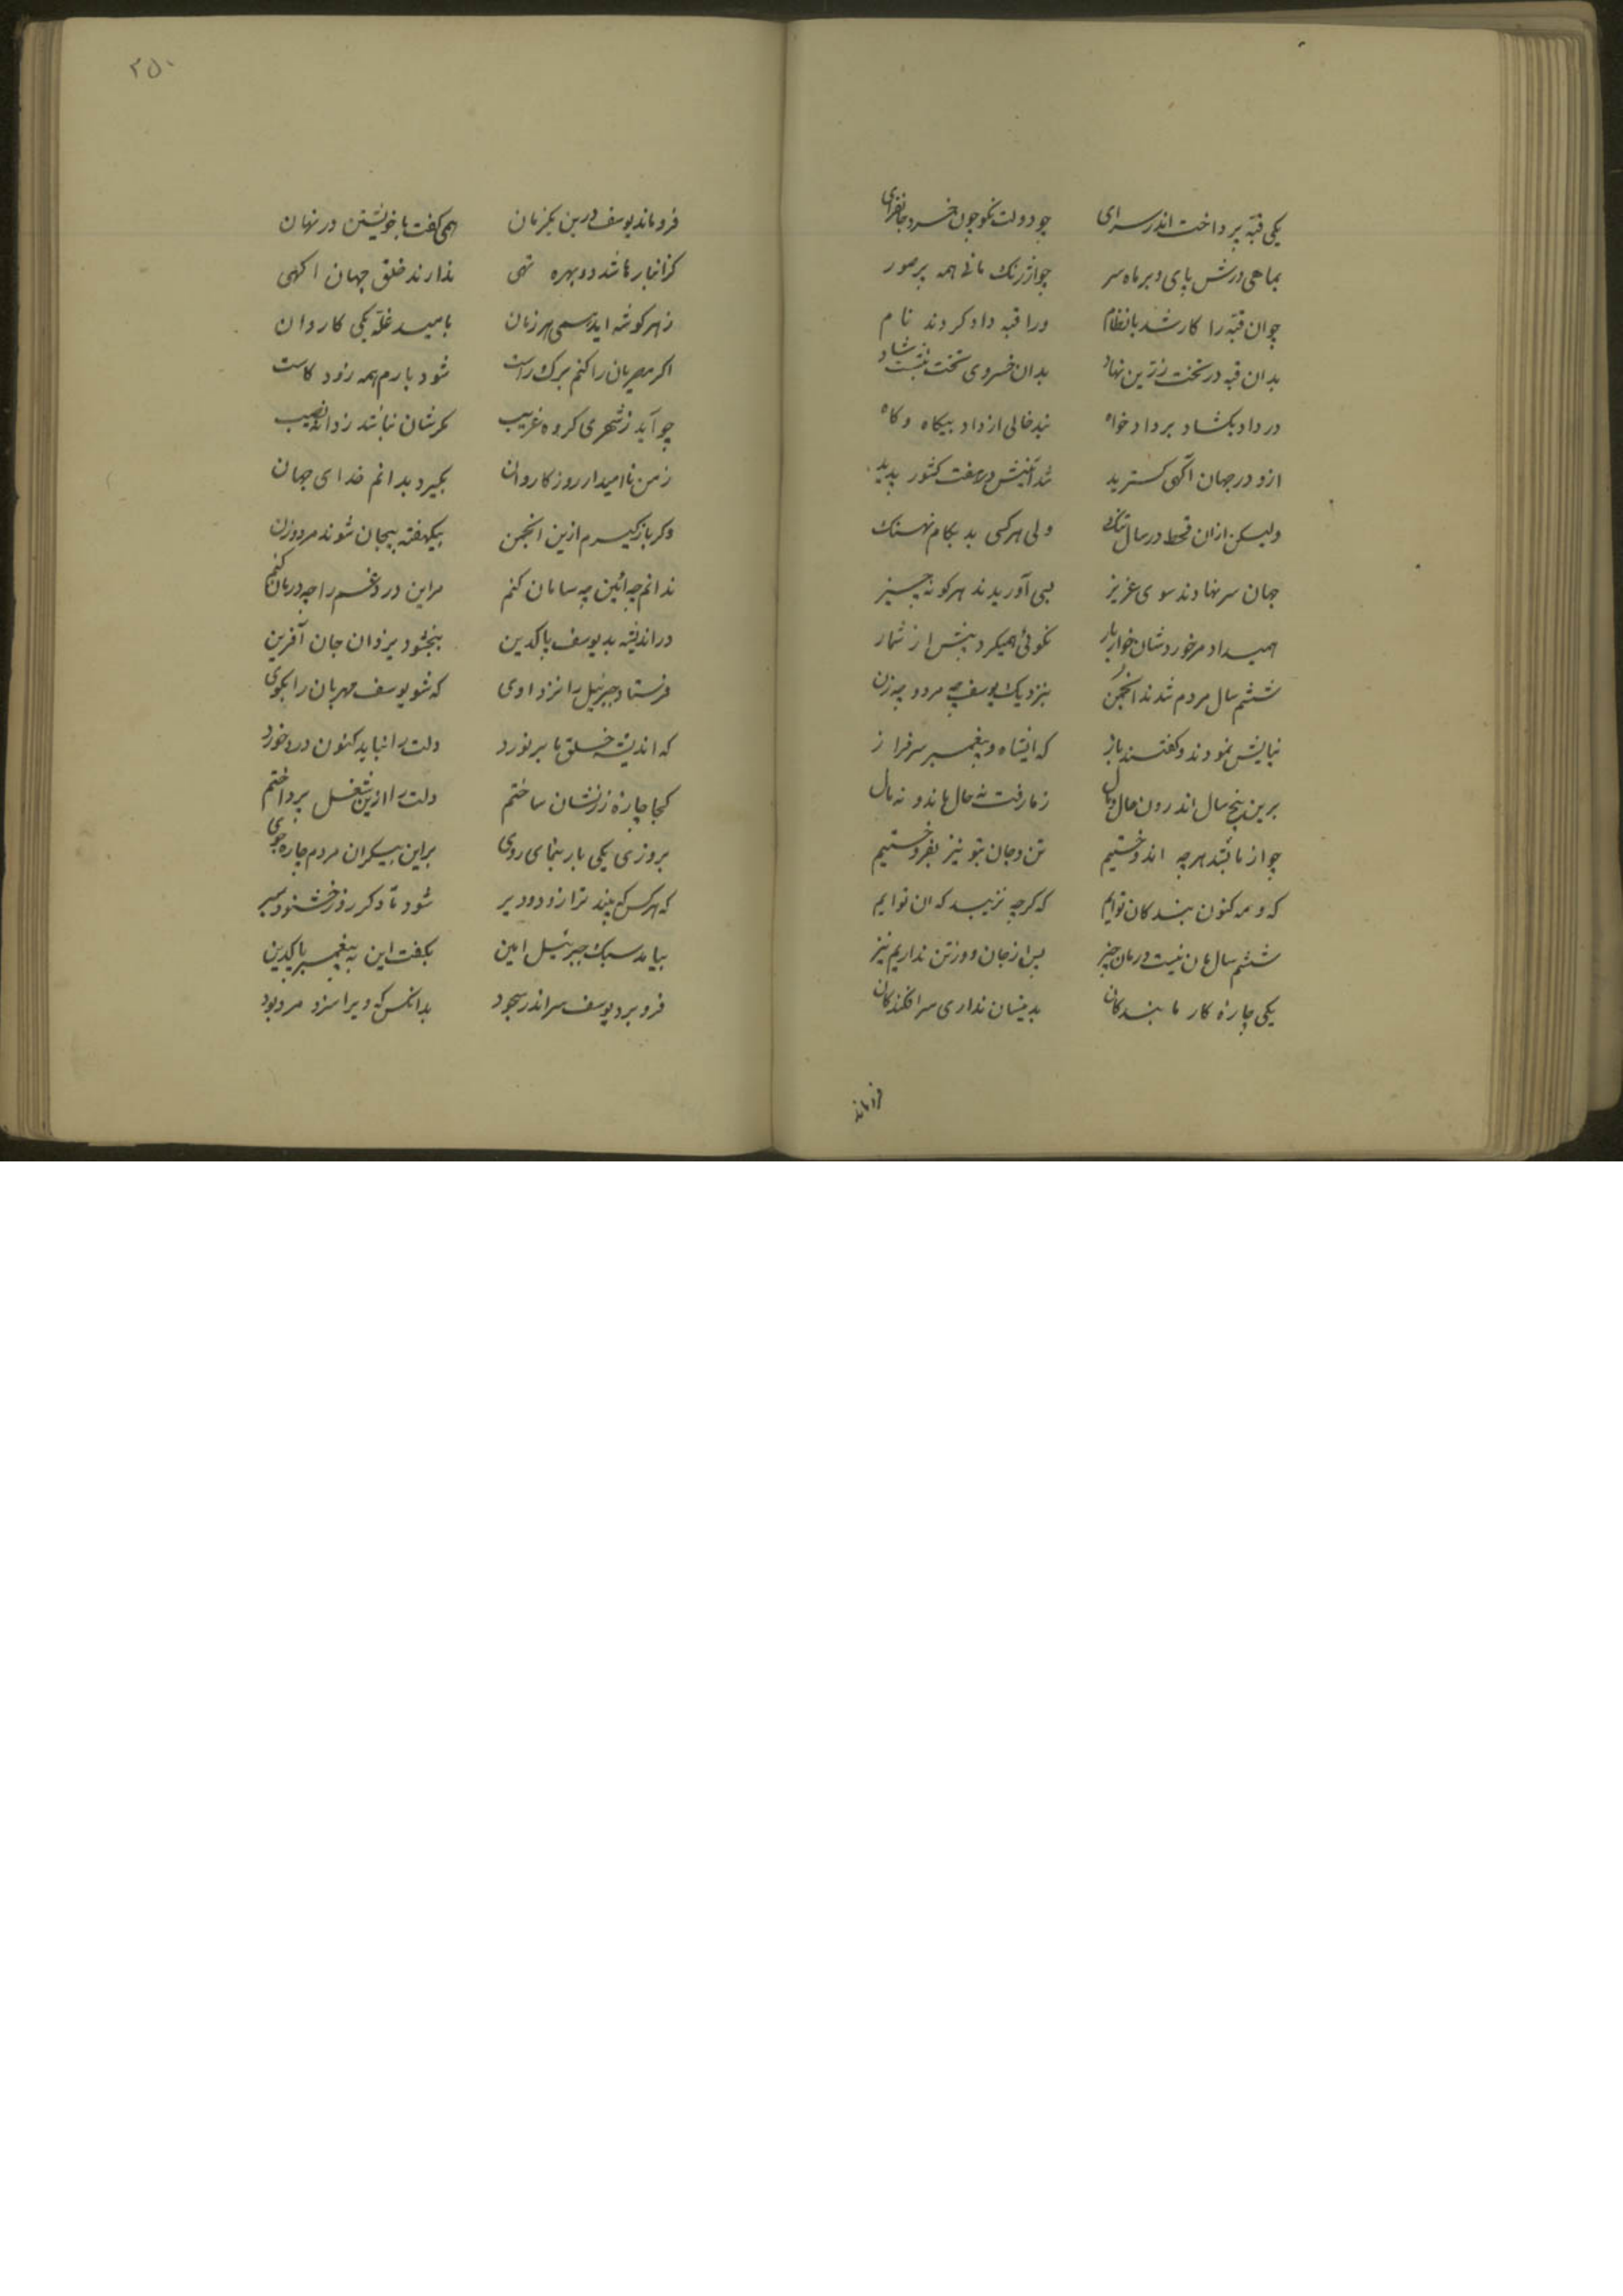 یکی قبه پرداخت اندر سرای چو دولت نکو چون خرد جانفزای
بماهی درش پای و بر ماه سر چو ارژنک مانی همه پر صور
چو ان قبه را کار شد بانظام ورا قبه داد کردند نام
بدان قبه در تخت زرین نهاد بدان خسروی تخت بنشست شاد
در داد بکشاد بر داد خواه نبد خالی از داد بیکاه و کاه
ازو در جهان آگهی کسترید شد آنیش در هفت کشور پدید
ولیکن ازان قحط در سال تنک ولی هر کسی بد بکام نهنک
جهان سر نهادند سوی عزیز بسی آوریدند هر کونه چیز
همیداد مر خوردشان خواربار نکوئی همیکرد بیش از شمار
ششم سال مردم شدند انجمن بنزدیک یوسف چه مرد و چه زن
نیایش نمودند و کفتند باز که ایشاه و پیغمبر سرفراز
برین پنج سال اندرون حال و مال ز ما رفت نه حال ماند و نه مال
چو از ما بشد هر چه اندوختیم تن و جان بتو نیز بفروختیم
که و مه کنون بندکان توایم که کر چه نزیبد که ان توایم
ششم سال مان نیست درمان چیز پس از جان و وز تن نداریم نیز
یکی چاره کار ما بندکان بدینسان نداری سرافکندکان
فروماند
۲۵۰
فروماند یوسف درین یکزمان همی کفت با خویشتن در نهان
کز انبار ها شد دو بهره تهی ندارند خلق جهان اکهی
ز هر کوشه اید همی هر زمان بامید غله یکی کاروان
اکر مصریان را کنم برک راست شود بارم همه زود کاست
چو آید ز شهری کروه غریب مکرشان نباشد ز دانه نصیب
ز من ناامیدار رود کاروان بکیرد بدانم خدای جهان
وکر باز کیرم ازین انجمن بیکهفته بیجان شوند مرد و زن
ندانم چه آئین چه سامان کنم مر این درد و غم را چه درمان کنم
در اندیشه بد یوسف پاکدین ببخشود یزدان جان آفرین
فرستاد جبرئیل را نزد اوی که شو یوسف مهربان را بکوی
که اندیشه خلق ما بر نورد دلت را نباید کنون درد خورد
کجا چاره زرنشان ساختم دلت را ازین شغل پرداختم
بروزی یکی بار بنمای روی بر این بیکران مردم چاره جوی
که هر کس که بیند ترا زود و دیر شود تا دکر روز خشنود سیر
بیامد سبک جبرئیل امین بکفت این به پیغمبر پاکدین
فرو برد یوسف سر اندر سجود بدانکس که ویرا سزد مر درود